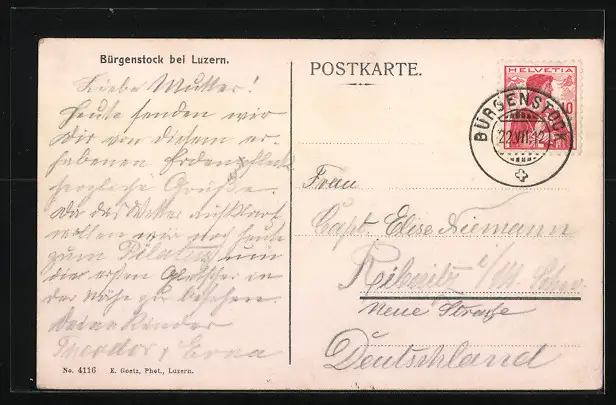 Bürgenstock bei Luzern.
Liebe Mutter!
Heute senden wir
Dir von diesem er-
habenen Erdenfleck
herzliche Grüße.
Da das Wetter
wollen wir noch heute
zum Pilatus, um
die ersten Gletscher in
der Nähe zu besehen.
Deine Kinder
Theodor & Erna
No. 4116 E. Goetz, Phot., Luzern.
POSTKARTE.
HELVETIA
10
BÜRGENSTOCK
22.VII.12
Frau
Capt. Elise Niemann
Ribnitz i/M. Schw.
Neue Strasse
Deutschland